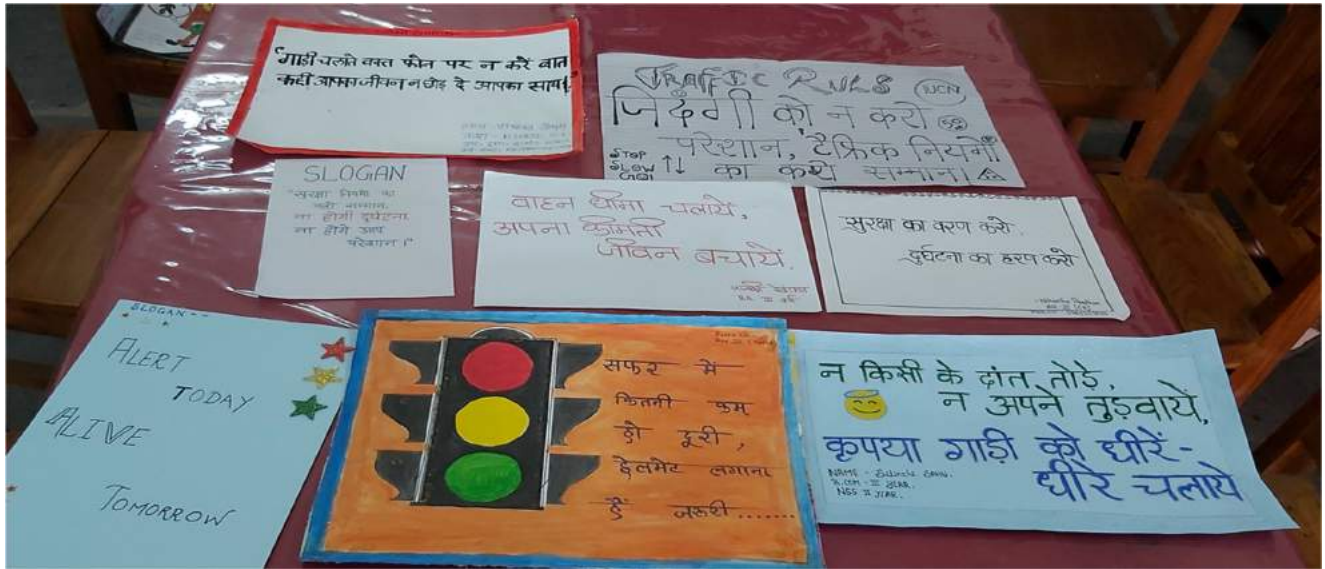 "गाड़ी चलाते वक्त फोन पर न करें बात
कहीं आपका जीवन न छोड़ दे आपका साथ।"
TRAFFIC RULES
IUCN
जिंदगी को न करो
परेशान, ट्रैफिक नियमों
का करो सम्मान।
STOP
SLOW
GO!
SLOGAN
"सुरक्षा नियमों का
करो सम्मान,
ना होगी दुर्घटना
ना होंगे आप
परेशान।"
वाहन धीमा चलायें,
अपना कीमती
जीवन बचायें.
सुरक्षा का वरण करो.
दुर्घटना का हरण करो
SLOGAN --
ALERT
TODAY
ALIVE
TOMORROW
सफर में
कितनी कम
हो दूरी,
हेलमेट लगाना
हैं जरूरी.......
न किसी के दांत तोड़े,
न अपने तुड़वायें,
कृपया गाड़ी को धीरें-
धीरे चलाये
NAME -
B.COM - II YEAR.
NSS II YEAR.